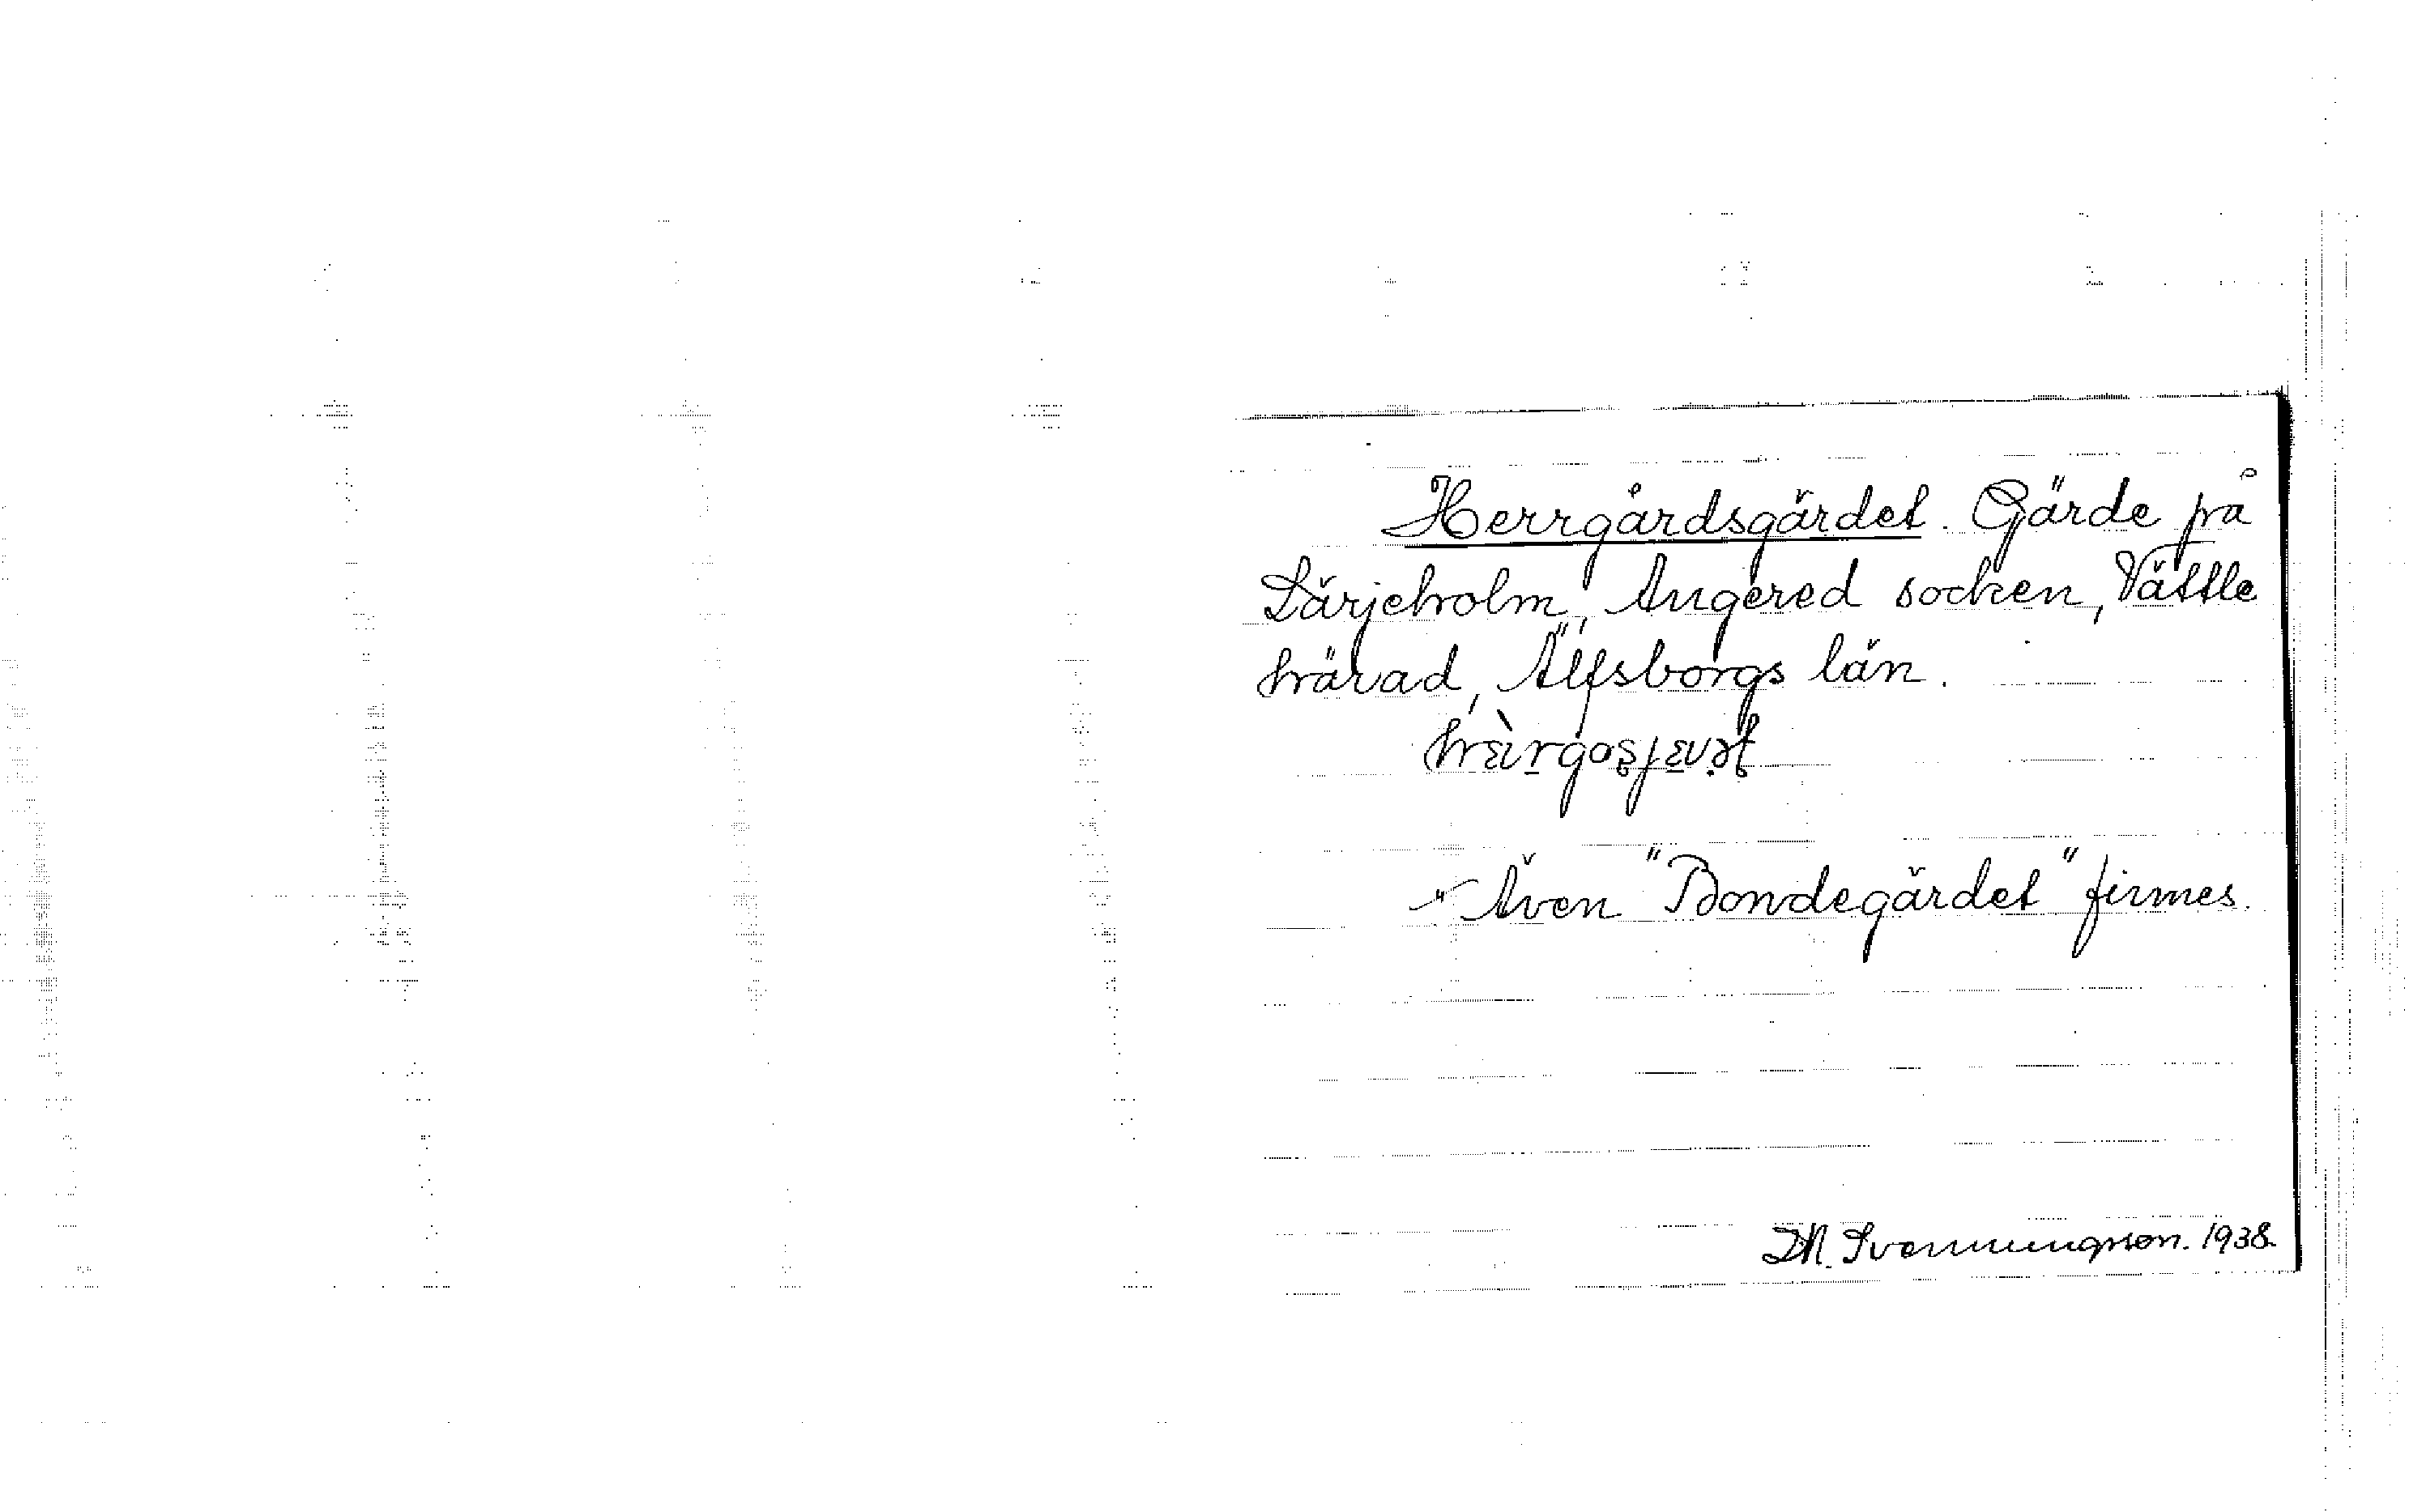 Herrgårdsgärdet. Gärde på
Lärjeholm, Angered socken, Vättle
härad, Älfsborgs län.
Även "Bondegärdet" finnes.
Svennungsson. 1938